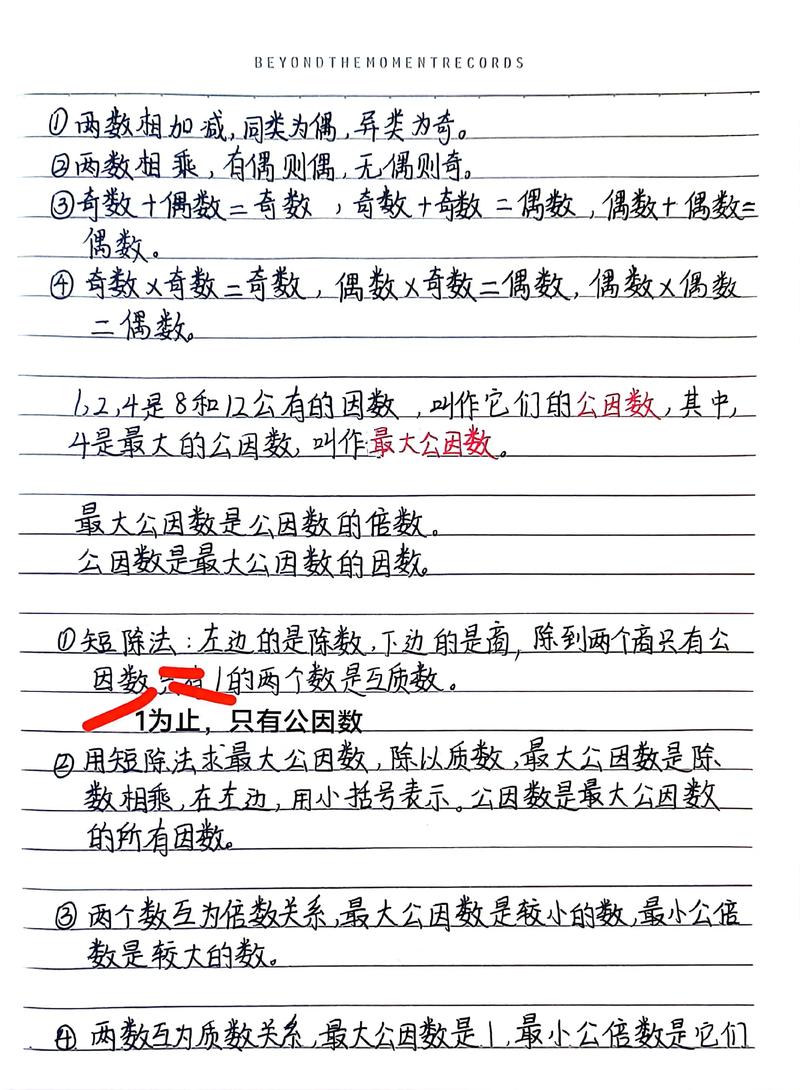 BEYONDTHEMOMENTRECORDS
①两数相加减,同类为偶,异类为奇。
②两数相乘,有偶则偶,无偶则奇。
③奇数+偶数=奇数,奇数+奇数=偶数,偶数+偶数=
偶数。
④奇数×奇数=奇数,偶数×奇数=偶数,偶数×偶数
=偶数。
1,2,4是8和12公有的因数,叫作它们的公因数,其中,
4是最大的公因数,叫作最大公因数。
最大公因数是公因数的倍数。
公因数是最大公因数的因数。
①短除法:左边的是除数,下边的是商,除到两个商只有公
因数只有1的两个数是互质数。
1为止，只有公因数
②用短除法求最大公因数,除以质数,最大公因数是除
数相乘,在左边,用小括号表示。公因数是最大公因数
的所有因数。
③两个数互为倍数关系,最大公因数是较小的数,最小公倍
数是较大的数。
④两数互为质数关系,最大公因数是1,最小公倍数是它们